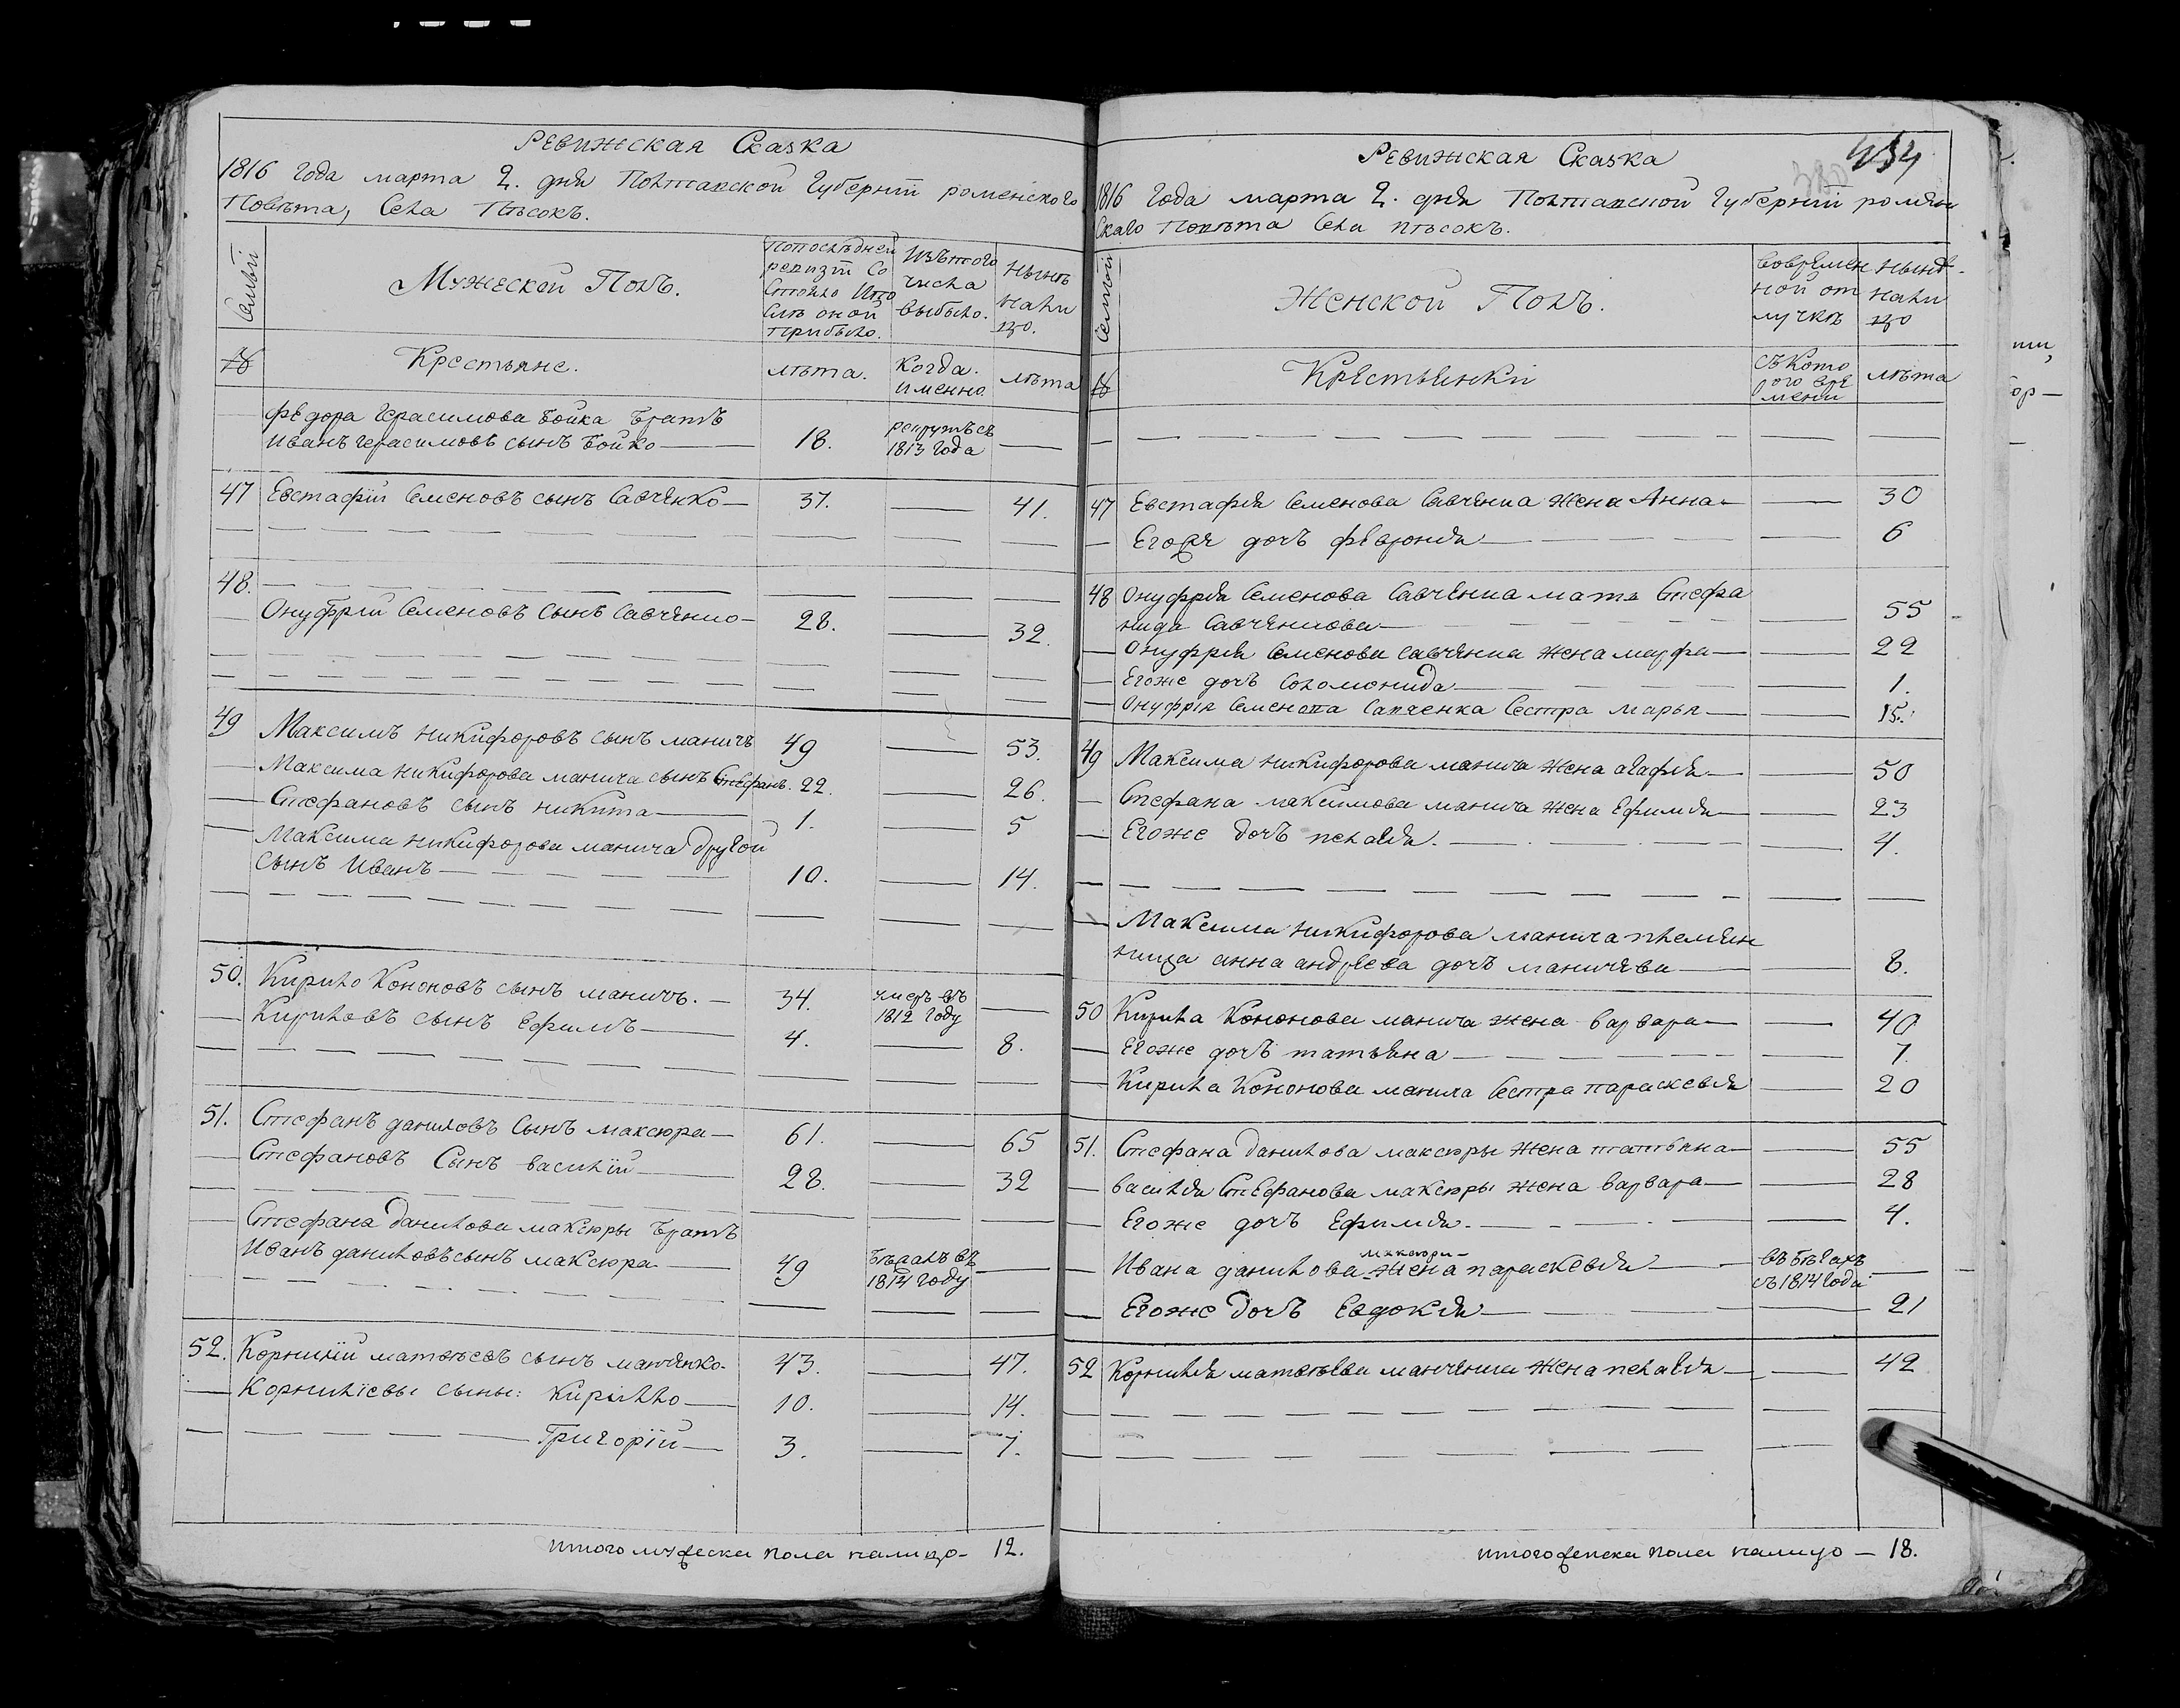 Ревижская Сказка
1816 Года марта 2. дня Полтавской Губернїи роменского
Повѣта, Села Пѣсокъ.
Семьи
Мужеской Полъ.
Попослѣдней
ревизїи Со
стояло Ипо
слѣ оной
прибыло.
Изътого
числа
выбыло.
нынѣ
нали
цо.
№
Крестьяне.
лѣта.
Когда
именно
лѣта
федора Герасимова Бойка Братъ
Иванъ герасимовъ сынъ Бойко — 18. рекрутъ съ 1813 года —
47 Евстафїй Семеновъ сынъ Савченко — 37. — 41.
48.
Онуфрїй Семеновъ Сынъ Савченко — 28. — 32.
49 Максимъ никифоровъ сынъ маничъ 49 — 53.
Максима никифорова манича сынъ Стефанъ. 22. — 26.
Стефановъ сынъ никита — 1. — 5
Максима никифорова манича другой
сынъ Иванъ — 10. — 14.
50. Кирило Кононовъ сынъ маничъ. — 34. умеръ въ 1812 году —
Кириловъ сынъ Ефимъ — 4. — 8.
51. Стефанъ даниловъ Сынъ максюра — 61. — 65
Стефановъ Сынъ василїй — 28. — 32
Стефана данилова максюры Братъ
Иванъ даниловъ сынъ максюра — 49 Бѣжалъ въ 1814 году —
52. Корнилїй матвѣевъ сынъ манченко. 43. — 47.
Корнилїевы сыны: Кирилло — 10. — 14.
Григорїй — 3. — 7.
итого мужеска пола налицо — 12.
Ревижская Сказка
434
1816 Года марта 2. дня Полтавской Губернїи ромен
Скаго Повѣта Села пѣсокъ.
Семьи
Женской Полъ.
Вовремен
ной от
лучкѣ
нынѣ
нали
цо
№
Крестьянки
Съкото
рого вре
мени
лѣта
47 Евстафія Семенова Савченка Жена Анна — 30
Егоже дочъ февронія — 6
48 Онуфрія Семенова Савченка мать Стефа
нида Савченкова — 55
Онуфрія Семенова савченка жена марфа — 22
Егоже дочъ Соломонида — 1.
Онуфрія Семенова Савченка Сестра марья — 15.
49 Максима никифорова манича жена агафія — 50
Стефана максимова манича жена Ефимія — 23
Егоже дочъ пелагія. — 4.
Максима никифорова манича племян
ница анна андреева дочъ маничева — 8.
50 Кирила Кононова манича жена варвара — 40
Егоже дочъ татьяна — 7.
Кирила Кононова манича Сестра параскевія — 20
51. Стефана данилова максюры жена татьяна — 55
василія Стефанова максюры жена варвара — 28
Егоже дочъ Ефимія. — 4.
Ивана данилова максюри жена параскевія — въ бѣгахъ съ 1814 года —
Егоже дочъ Евдокія — 21
52 Корнилія матвѣева манченка жена пелагія — 42
итого женска пола налицо — 18.